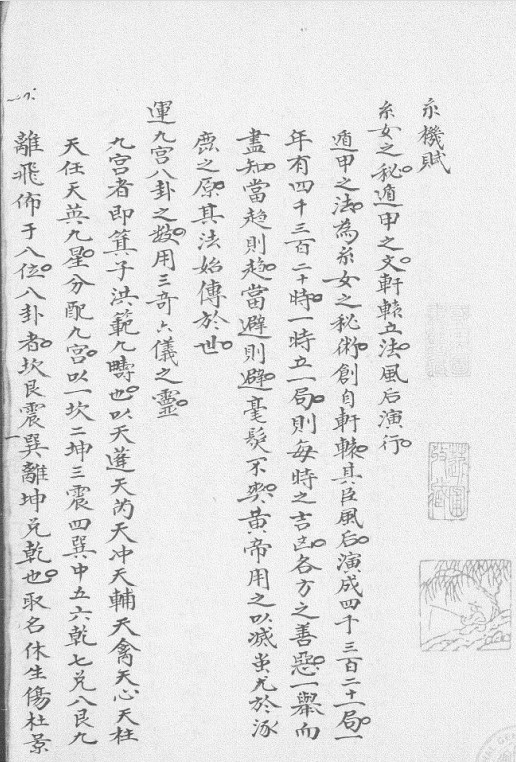 玄機賦
玄女之秘。遁甲之文。軒轅立法。風后演行。
遁甲之法。為玄女之秘術。創自軒轅。其臣風后。演成四千三百二十一局。一
年有四千三百二十時。一時立一局。則每時之吉凶。各方之善惡。一舉而
盡知。當趋則趋。當避則避。毫髮不爽。黃帝用之以滅蚩尤於涿
鹿之原。其法始傳於世。
運九宮八卦之數。用三奇六儀之靈。
九宮者即箕子洪範九疇也。以天蓬天芮天冲天輔天禽天心天柱
天任天英九星。分配九宮。以一坎二坤三震四巽中五六乾七兌八艮九
離飛佈于八位。八卦者。坎艮震巽離坤兌乾也。取名休生傷杜景